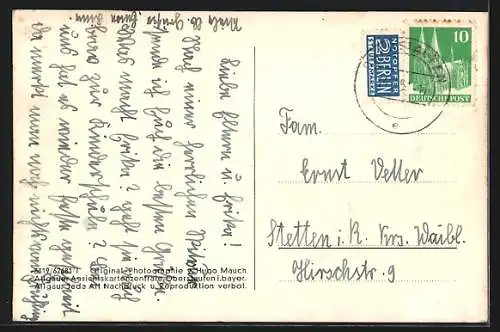 Liebe Eltern u. Erika!
Nach einer herrlichen
sende ich Euch die besten Grüße.
Was macht Erika? geht sie noch
brav zur Kinderschule? Bei
uns hat es wieder fest geschneit
da merkt man noch nichts vom Frühling
Viele lb. Grüße
NOTOPFER
2 BERLIN
STEUERMARKE
10
DEUTSCHE POST
Fam.
Ernst Vetter
Stetten i. R. Krs. Waibl.
Hirschstr. 9
Original-Photographie v. Hugo Mauch
Allgäuer Ansichtskartenzentrale, Oberstaufen i. bayer.
Allgäu. Jede Art Nachdruck u. Reproduktion verbot.